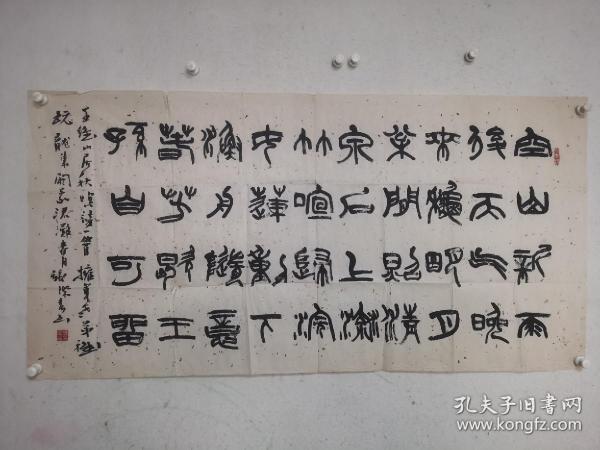 空山新雨
後天气晚
來秋明月
松間照清
泉石上流
竹喧歸浣
女蓮動下
漁舟隨意
春芳歇王
孫自可留
王維山居秋暝詩一首
孔夫子旧书网
www.kongfz.com